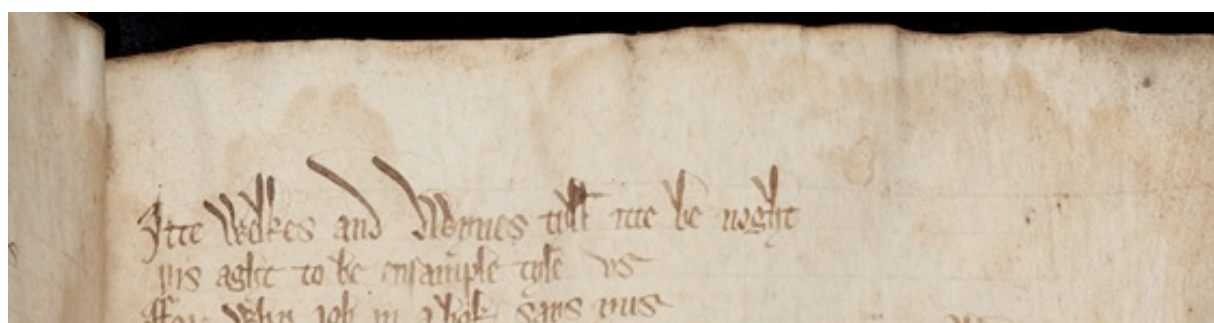 Itte Welkes and Dwynes till itte be noght
yis aght to be ensample tyll vs
ffor Why iob in a bok says yus